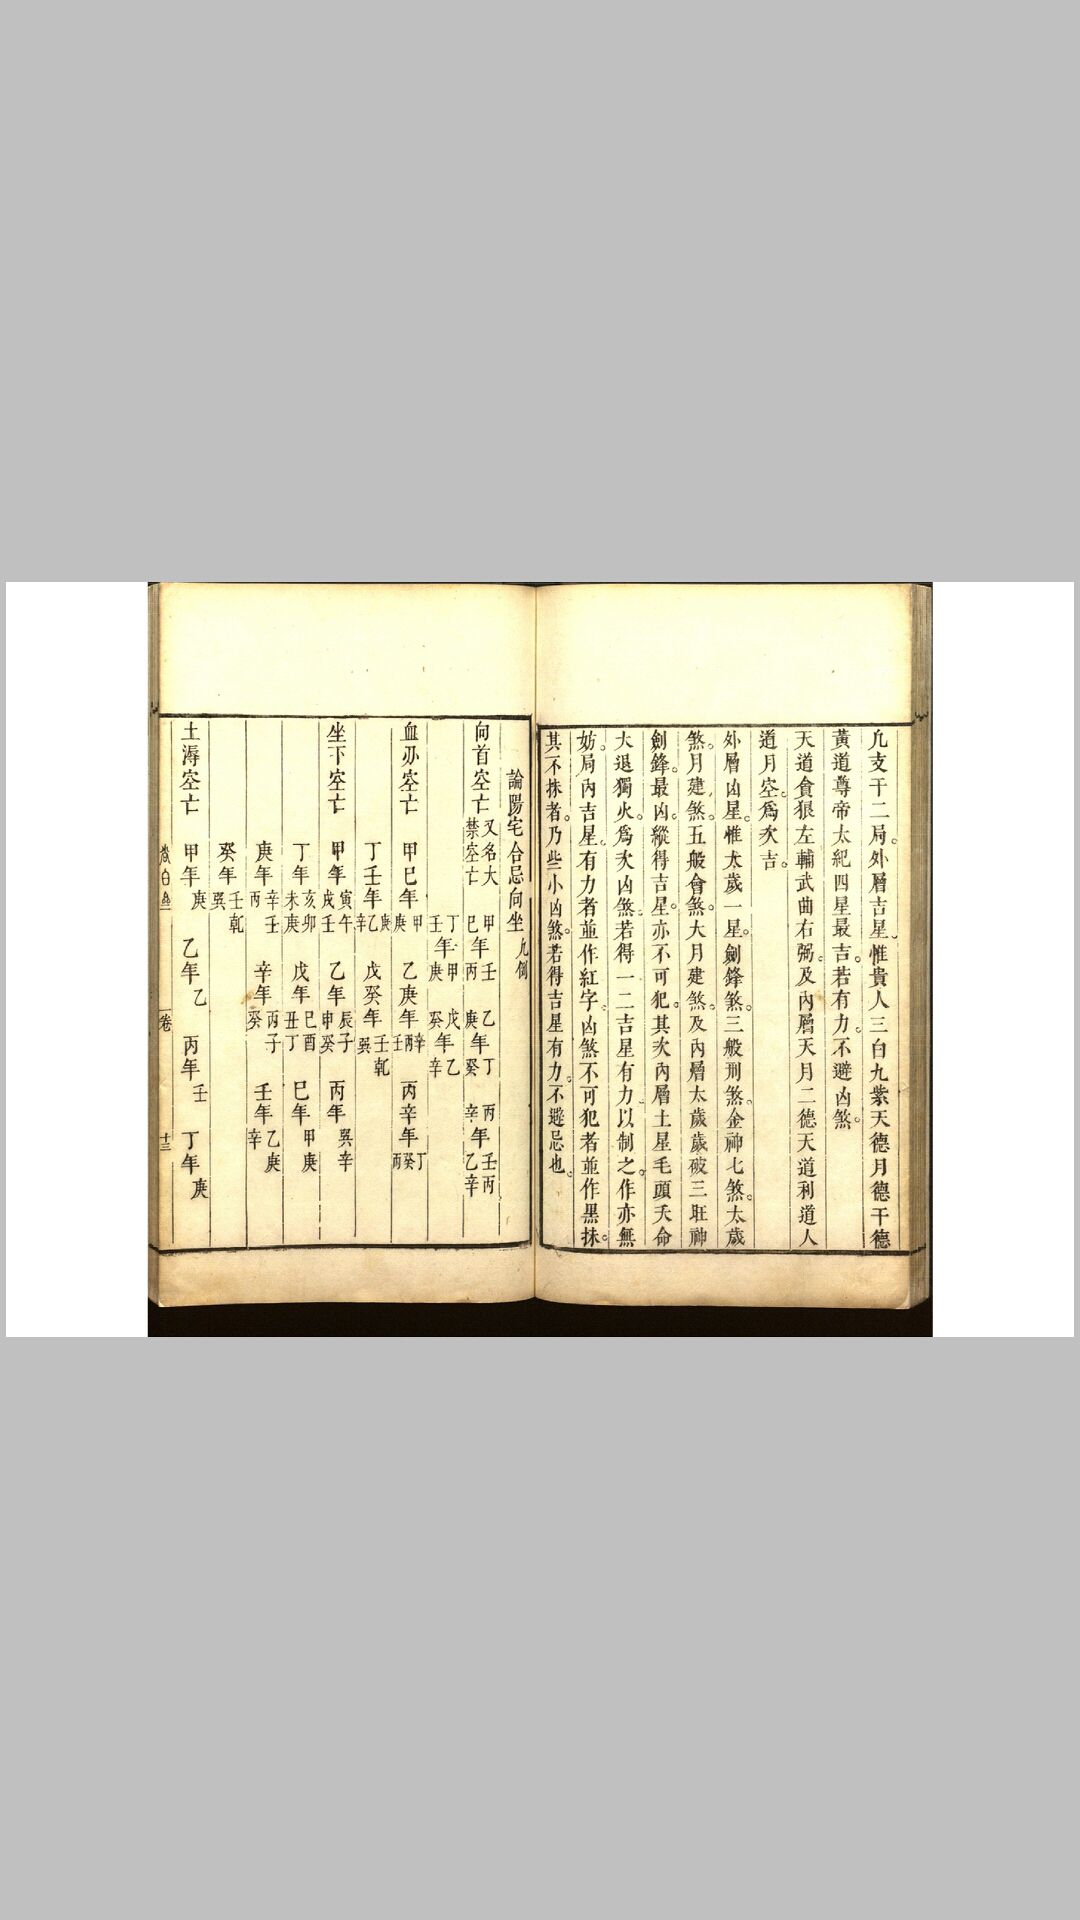 凡支干二局。外層吉星、惟貴人三白九紫天德月德干德
黃道尊帝太紀四星最吉。若有力。不避凶煞。
天道貪狼左輔武曲右弼。及內層天月二德天道利道人
道月空。爲次吉。
外層凶星。惟太歲一星。劍鋒煞。三般刑煞。金神七煞。太歲
煞。月建煞。五般會煞。大月建煞。及內層太歲歲破三旺神
劍鋒。最凶。縱得吉星。亦不可犯。其次內層土星毛頭夭命
大退獨火。爲次凶煞。若得一二吉星有力、以制之。作亦無
妨。局內吉星。有力者並作紅字。凶煞不可犯者並作黑抹。
其不抹者。乃些小凶煞。若得吉星有力。不避忌也。
論陽宅合忌向坐 九例
向首空亡 又名大禁空亡 甲巳年 壬丙 乙庚年 丁癸 丙辛年 壬丙乙辛
丁壬年 甲庚 戊癸年 乙辛
血刃空亡 甲巳年 甲庚 乙庚年 辛丙壬 丙辛年 丁癸丙
丁壬年 庚乙辛 戊癸年 壬乾巽
坐下空亡 甲年 寅午戌壬 乙年 辰子申癸 丙年 巽辛
丁年 亥卯未庚 戊年 巳酉丑丁 巳年 甲庚
庚年 辛壬丙 辛年 丙子癸 壬年 乙庚辛
癸年 壬乾巽
土溽空亡 甲年 庚 乙年 乙 丙年 壬 丁年 庚
卷 十三